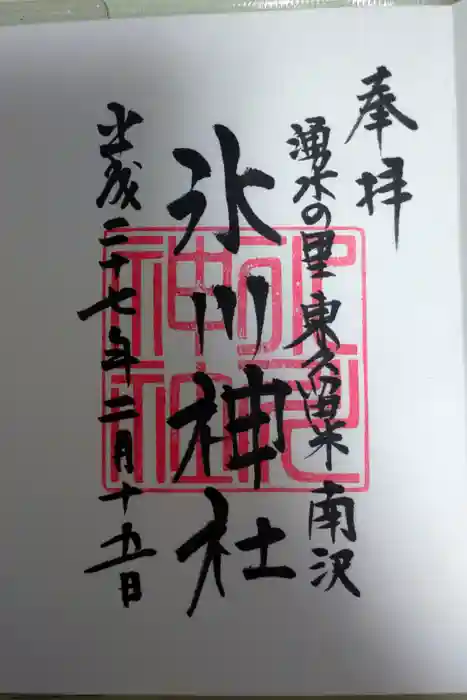 奉拝
湧水の里 東久留米 南沢
氷川神社
平成二十七年二月十五日